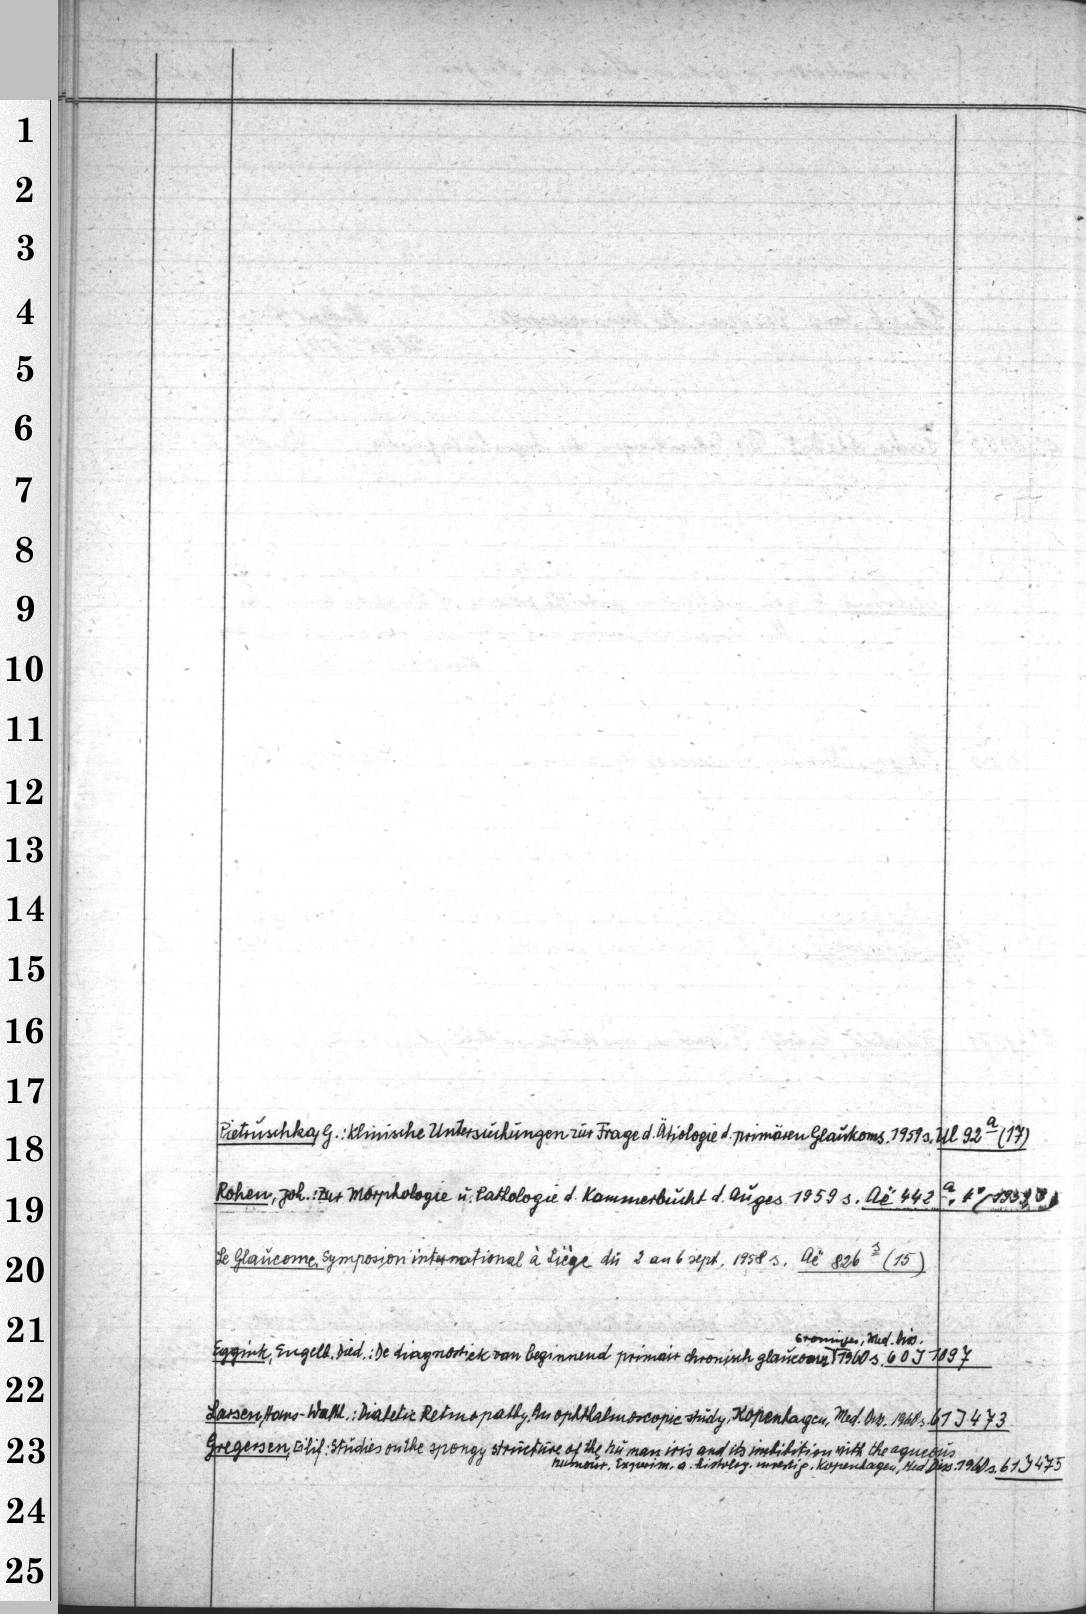 1
2
3
4
5
6
7
8
9
10
11
12
13
14
15
16
17
Pietruschka, G.: Klinische Untersuchungen zur Frage d. Ätiologie d. primären Glaukoms. 1959 s. Ul 92 a (17)
18
Rohen, Joh.: Zur Morphologie u. Pathologie d. Kammerbucht d. Auges 1959 s. Aë 442 a,
19
Le Glaucome. Symposion international à Liège du 2 au 6 sept. 1958 s. Aë 826 s (15)
20
21
Groningen, Med. Diss.
Eggink, Engelb. Died.: De diagnostiek van beginnend primair chronisch glaucoom 1960 s. 60 J 1097
22
Larsen, Hans-Walth.: Diabetic Retinopathy. An ophthalmoscopic study. Kopenhagen, Med. Diss. 1960 s. 61 J 473
23
Gregersen, Eilif: Studies on the spongy structure of the human iris and its imbibition with the aqueous
humour. Experim. a. histolog. investig. Kopenhagen, Med. Diss. 1960 s. 61 J 475
24
25